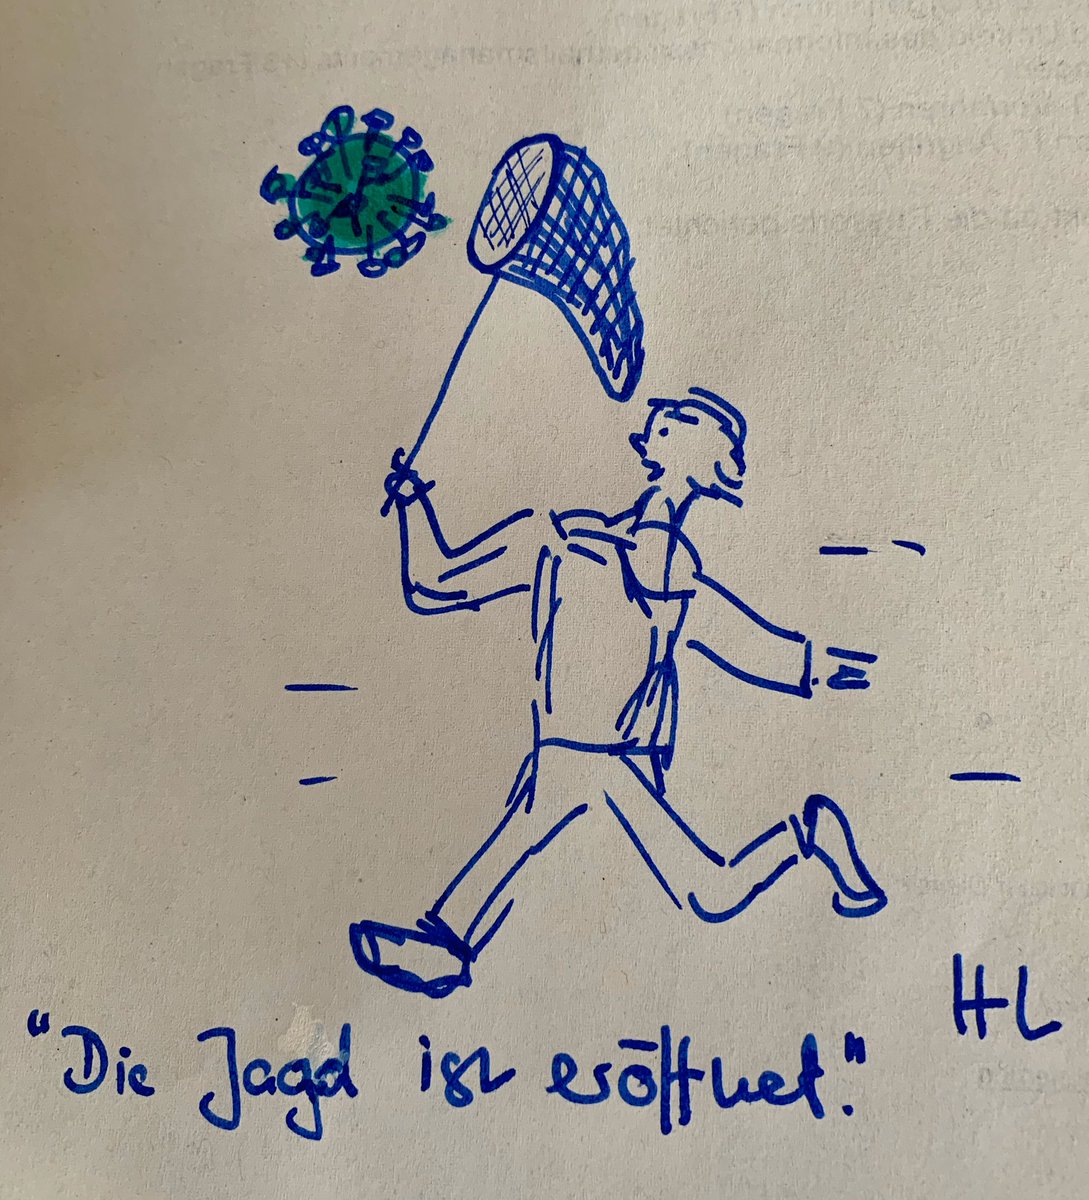 HL
"Die Jagd ist eröffnet."